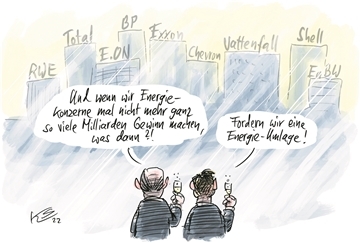 BP
Total
Exxon
Shell
Vattenfall
E.ON
Chevron
RWE
EnBW
Und wenn wir Energie-
konzerne mal nicht mehr ganz
so viele Milliarden Gewinn machen,
was dann?!
Fordern wir eine
Energie-Umlage!
22